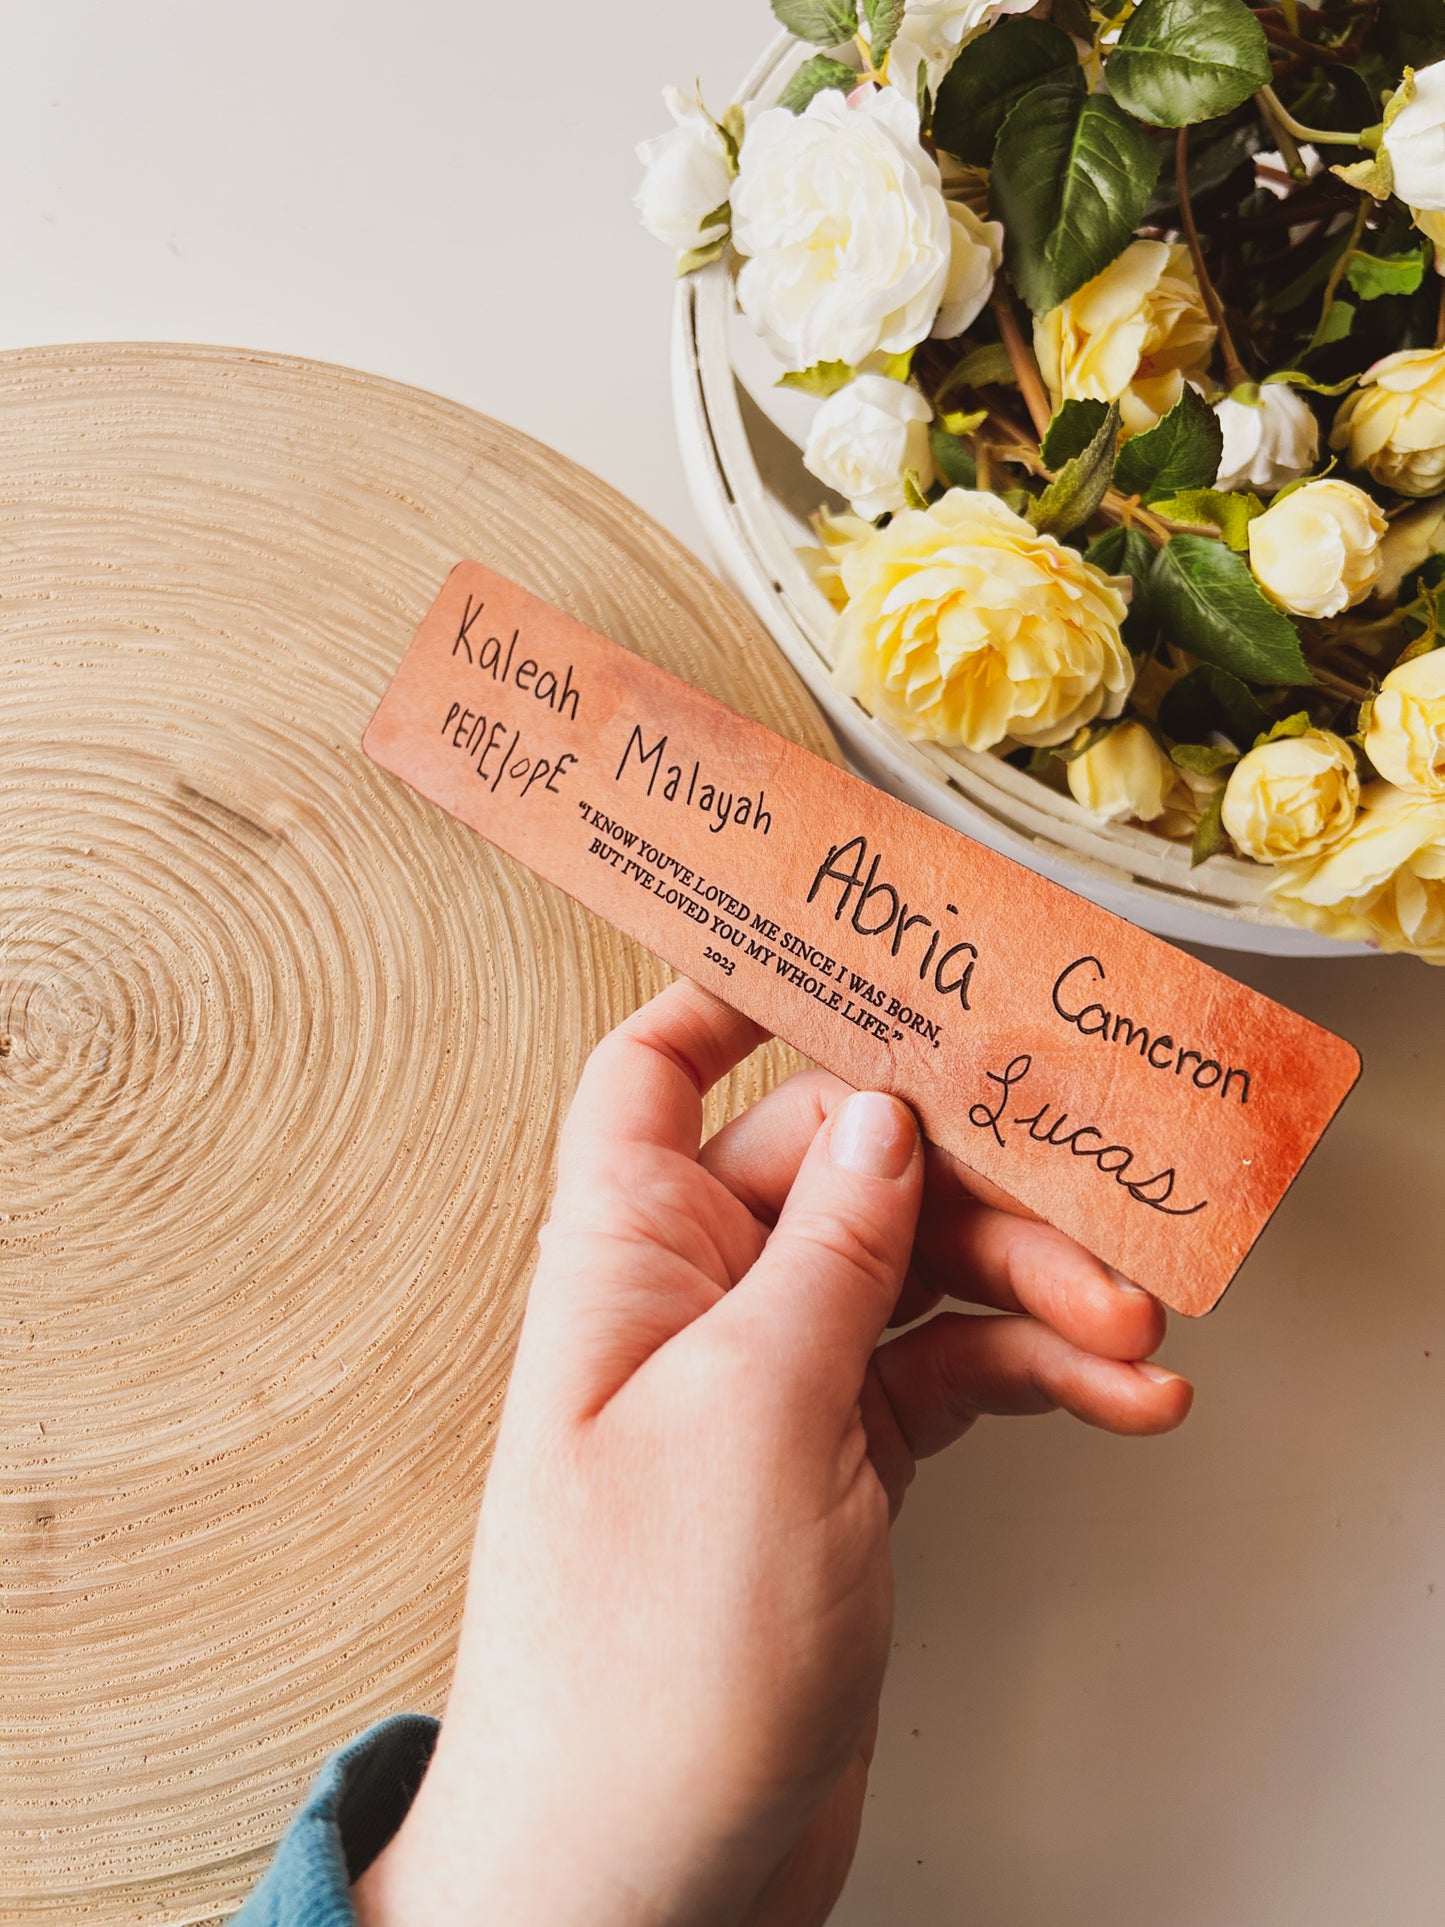 Kaleah
Malayah
Abria
Cameron
PEnElopE
"I KNOW YOU'VE LOVED ME SINCE I WAS BORN,
BUT I'VE LOVED YOU MY WHOLE LIFE."
2023
Lucas